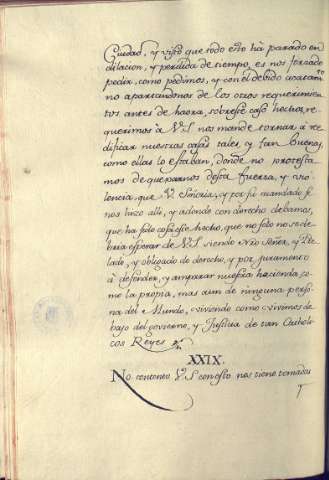 Ciudad, y visto que todo esto ha parado en
dilacion, y perdida de tiempo, es nos forzado
pedir, como pedimos, y con el debido acatam.to
no apartandonos de los otros requerimien
tos antes de haora, sobreste caso hechos, re
querimos à V.S. nos mande tornar à re
dificar nuestras casas tales, y tan buenas,
como ellas lo estaban, donde no protesta
mos de quejarnos desta fuerza, y vio
lencia, que V. Señoria, y por su mandado se
nos hizo alli, y adonde con derecho debamos,
que ha sido caso este hecho, que no solo no se de
bria esperar de V.S. siendo Nro Señor, y Pre
lado, y obligado de derecho, y por juramento
à defender, y amparar nuestra hacienda, co
mo la propia, mas aun de ninguna perso
na del Mundo, viviendo como vivimos de
bajo del govierno, y Justicia de tan Catholi
cos Reyes
XXIX.
No contento V.S. con esto nos tiene tomados